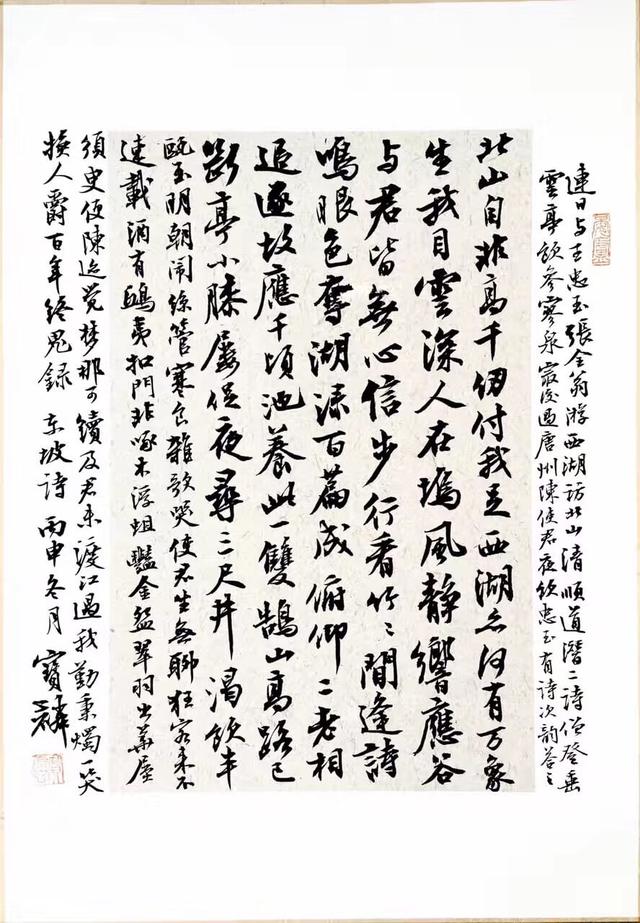 連日与王忠玉張全翁游西湖訪北山清順道潛二詩僧登垂
雲亭飲參寥泉最後過唐州陳使君夜飲忠玉有詩次韵答之
北山自非高千仞付我足西湖亦何有万象
生我目雲深人在塢風靜響應谷
与君皆無心信步行看竹〻間逢詩
鳴眼色奪湖渌百篇成俯仰二老相
追逐故應千頃池養此一雙鵠山高路已
斷亭小膝屢促夜尋三尺井渴飲半
甌玉明朝鬧絲管寒食雜歌哭使君坐無聊狂客来不
速載酒有鴟夷扣門非啄木浮蛆灩金盌翠羽出華屋
須臾便陳迹覺梦那可續及君未渡江過我勤秉燭一笑
換人爵百年終鬼録 东坡詩 丙申冬月 寶麟